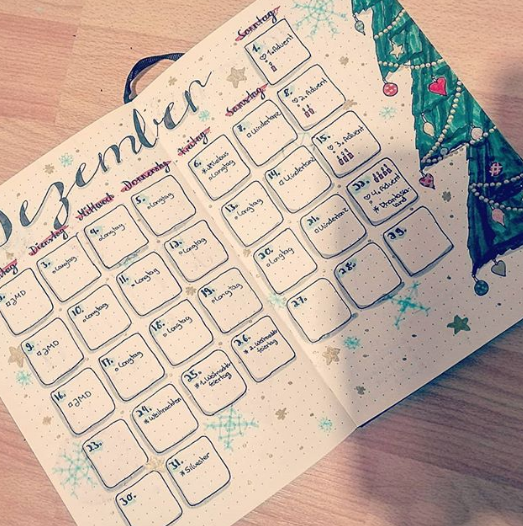 Dezember
Dienstag
Mittwoch
Donnerstag
Freitag
Samstag
Sonntag
1.
♡ 1. Advent
JMD
3.
Langtag
4.
Langtag
5.
Langtag
6.
* Nikolaus
Langtag
7.
8.
♡ 2. Advent
9.
JMD
10.
Langtag
11.
Langtag
12.
Langtag
13.
Langtag
14.
15.
♡ 3. Advent
16.
JMD
17.
Langtag
18.
Langtag
19.
Langtag
20.
Langtag
21.
22.
♡ 4. Advent
23.
24.
* Weihnachten
25.
* 1. Weihnachts
feiertag
26.
* 2. Weihnachts
feiertag
27.
28.
29.
30.
31.
* Silvester